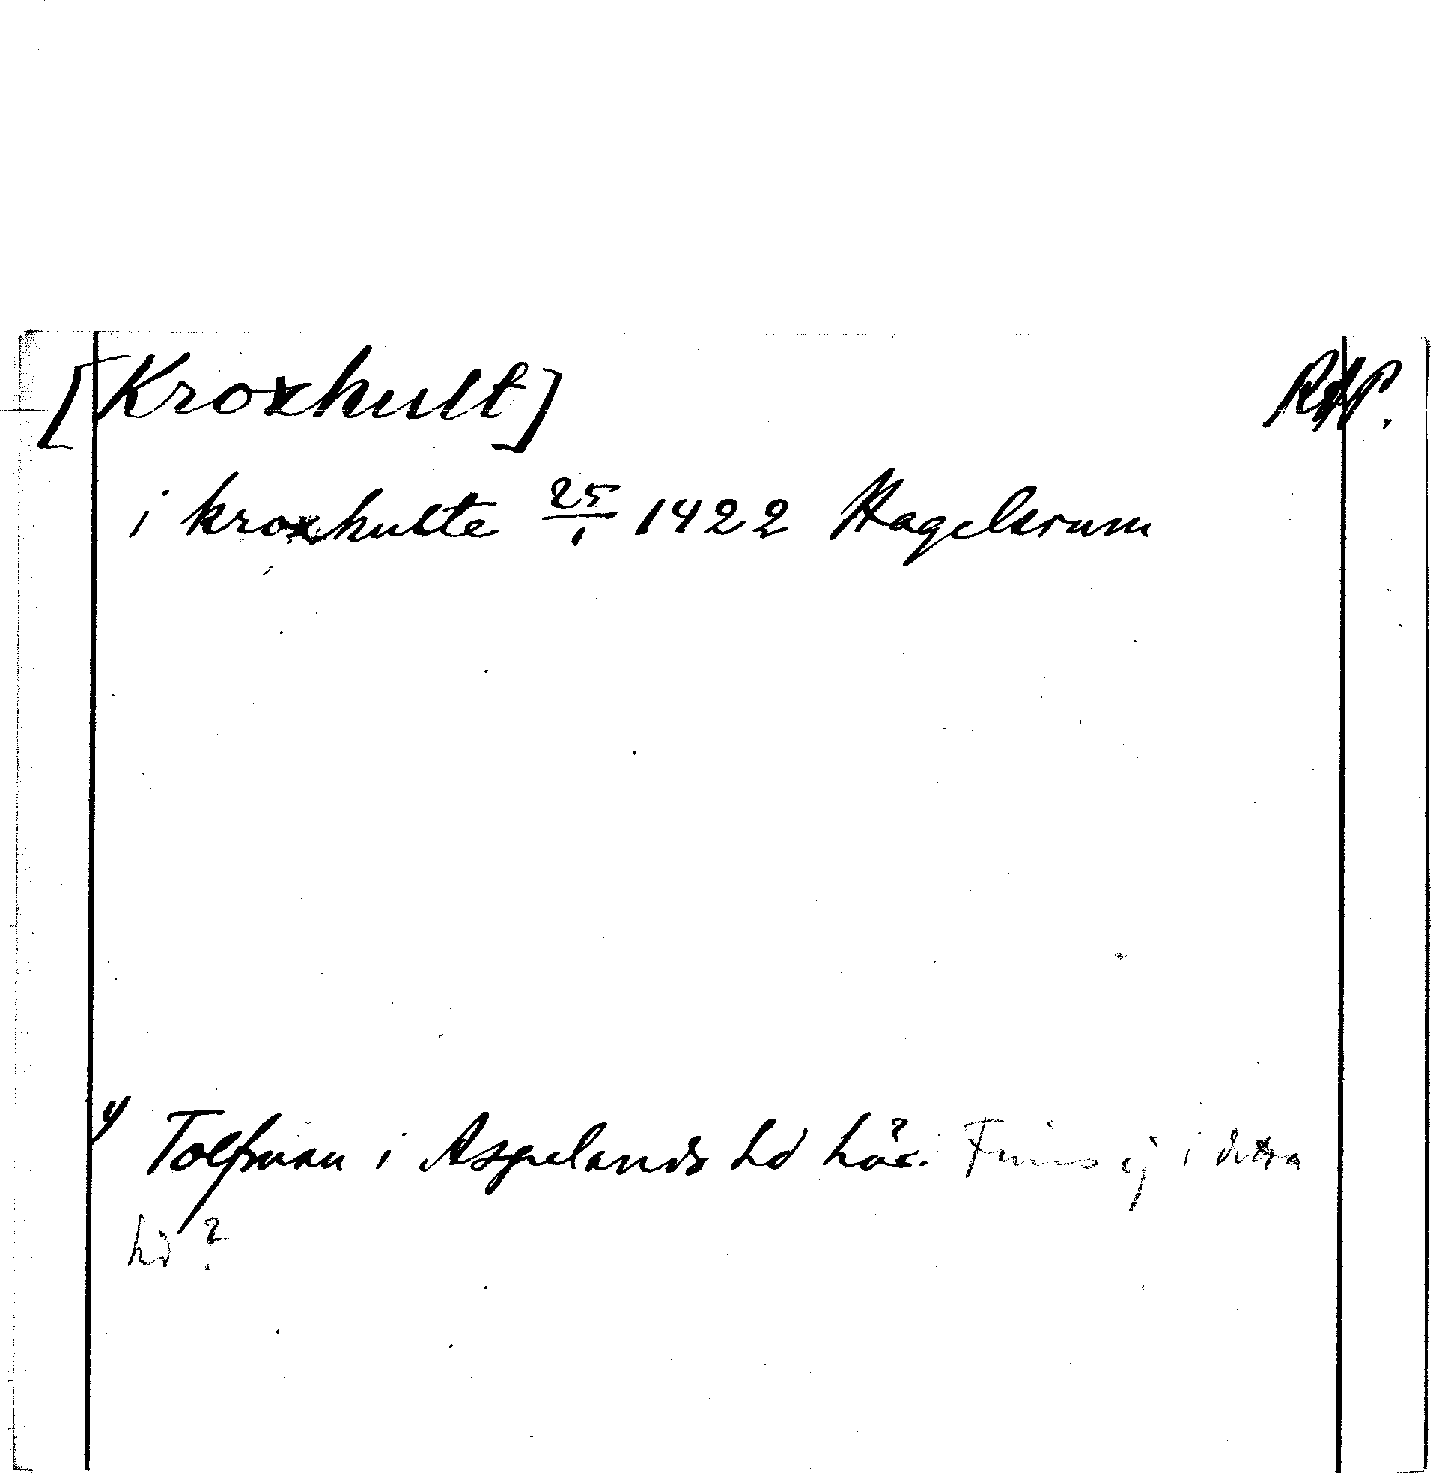 [Kroxhult] RAP.
i kroxhulte 25/1 1422 Hagelsrum
y Tolfman i Aspelands hd här. Finns ej i detta
hd?